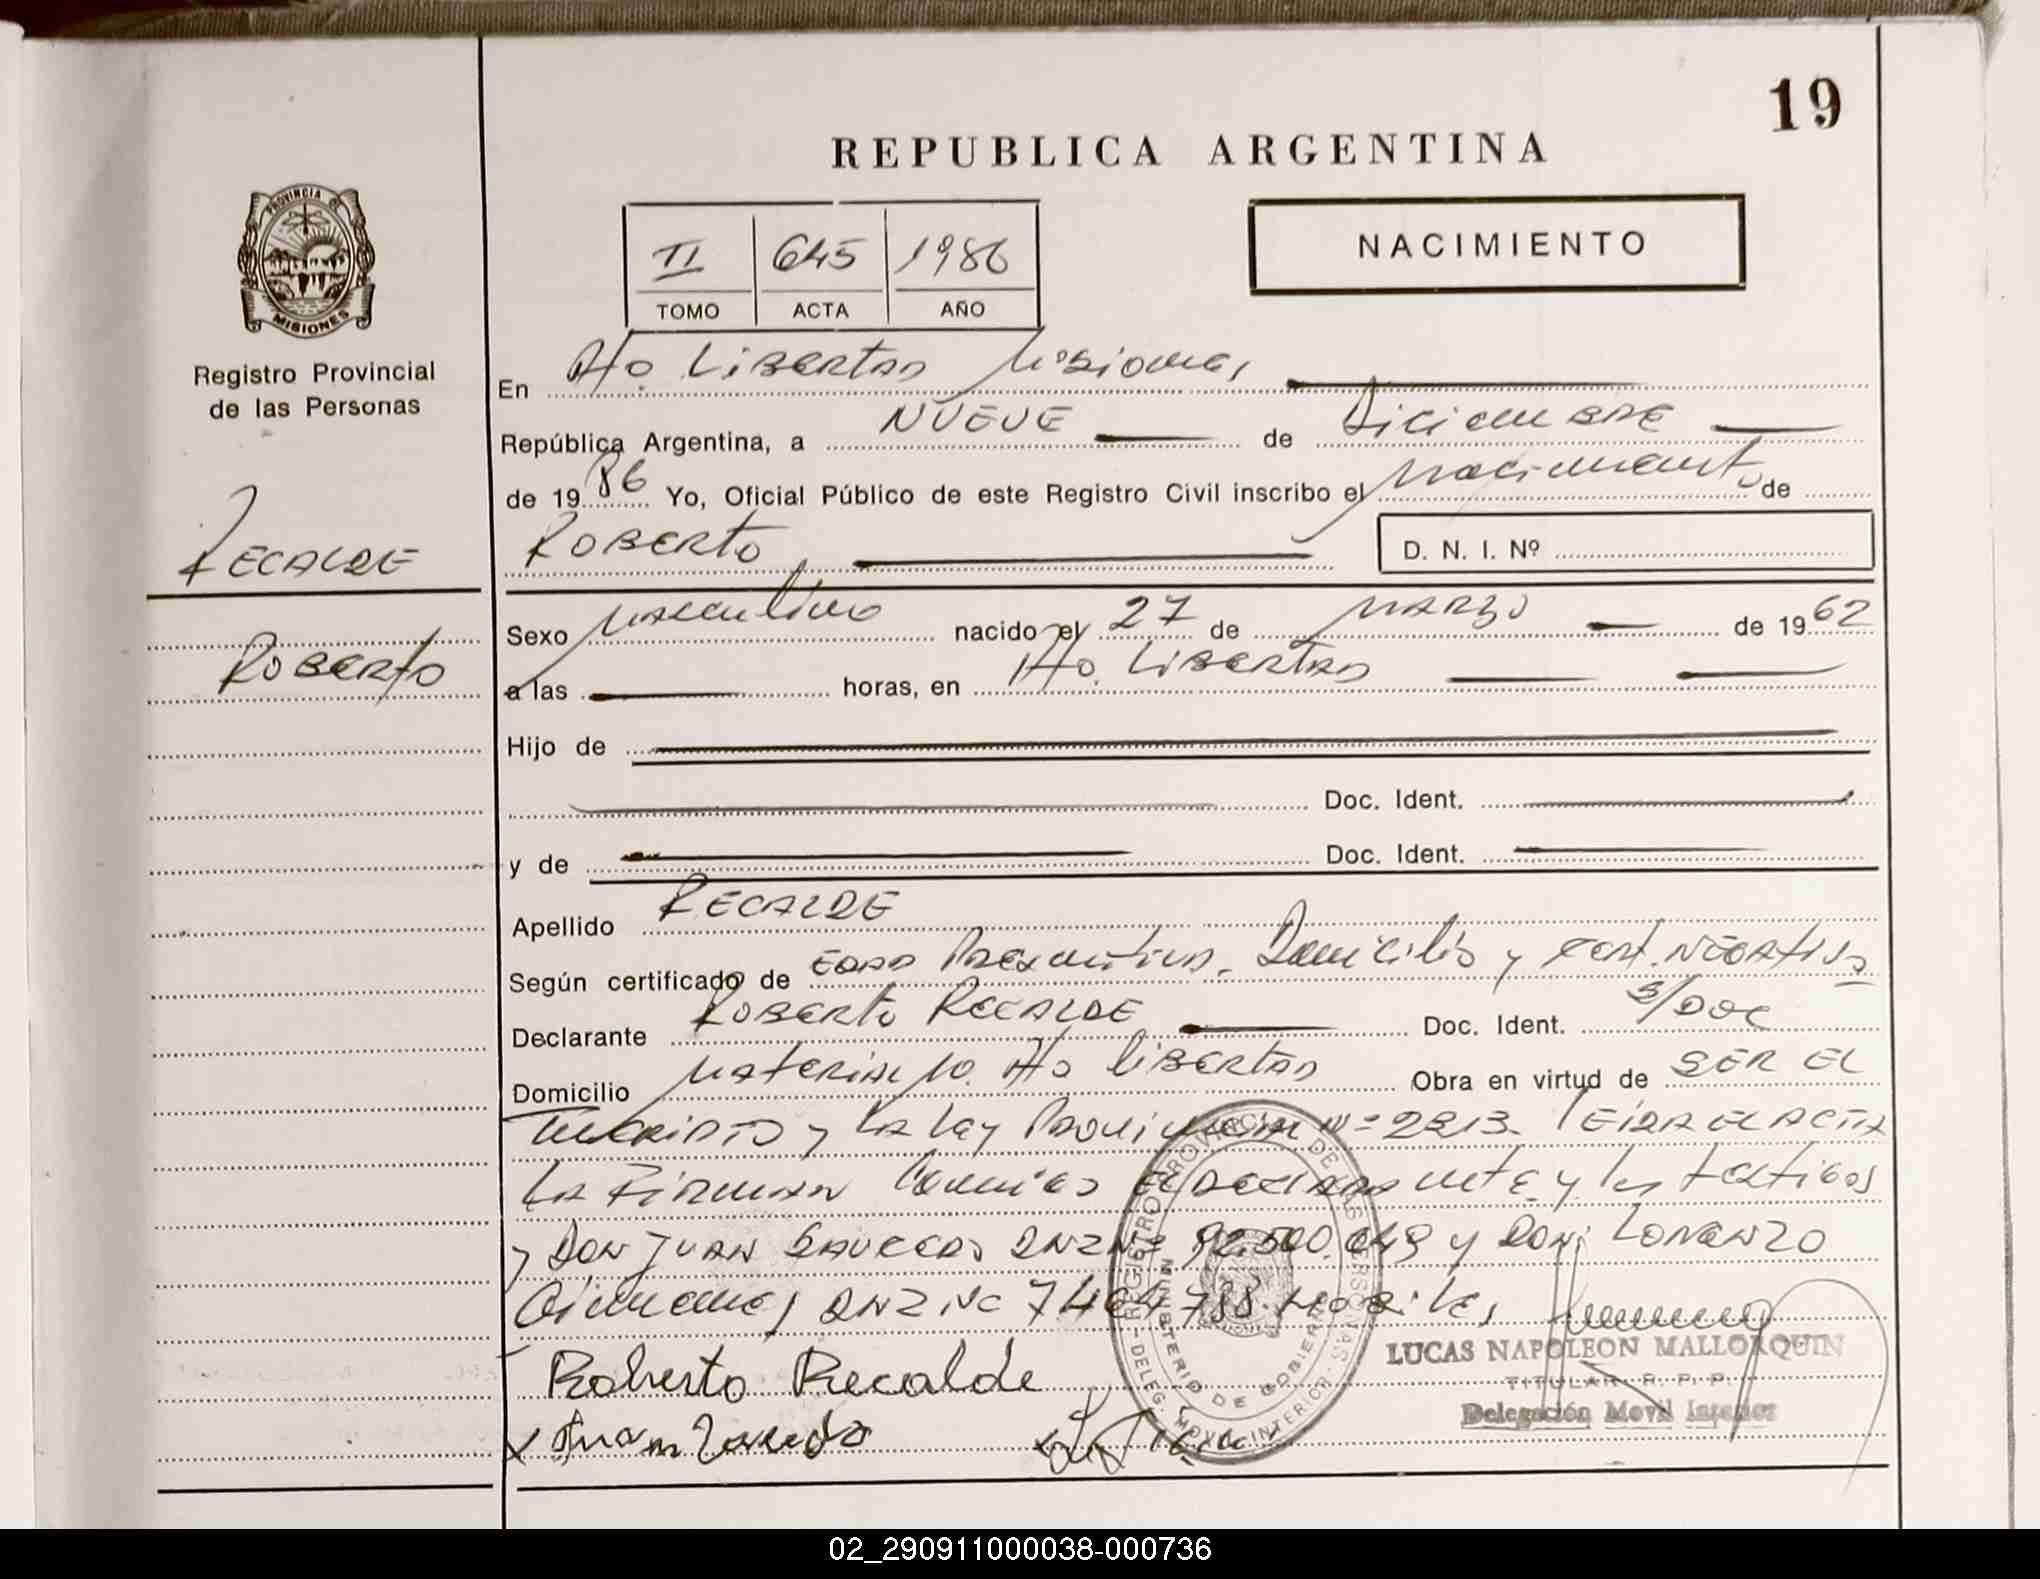 19
REPUBLICA ARGENTINA
PROVINCIA DE
MISIONES
Registro Provincial
de las Personas
II 645 1986
TOMO ACTA AÑO
NACIMIENTO
En Pto. Libertad Misiones
República Argentina, a NUEVE de Diciembre
de 1986 Yo, Oficial Público de este Registro Civil inscribo el Nacimiento de
RECALDE
Roberto
Roberto
D. N. I. Nº
Sexo Masculino nacido el 27 de Marzo de 1962
a las horas, en Pto. Libertad
Hijo de
Doc. Ident.
y de Doc. Ident.
Apellido RECALDE
Según certificado de EDAD Presuntiva, Domicilio y Cert. Negativo
Declarante Roberto RECALDE Doc. Ident. S/DOC
Domicilio Pto Libertad Obra en virtud de SER EL
Inscripto y la Ley Provincial Nº 2213. LEIDA EL ACTA
La Firman Conmigo el declarante y los testigos
y DON JUAN DNI Nº 92.500.049 y DON LORENZO
Gimenez DNI Nº 7464788. Habiles
REGISTRO PROVINCIAL DE LAS PERSONAS
MINISTERIO DE GOBIERNO
DELEG. MOVIL INTERIOR
LUCAS NAPOLEON MALLORQUIN
TITULAR R. P. P.
Delegación Movil Interior
Roberto Recalde
x Juan
02_290911000038-000736